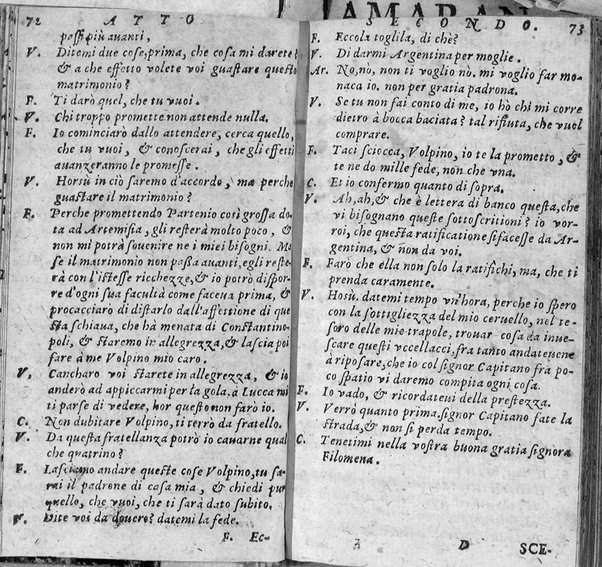 AMARAN
72 ATTO
passi più avanti,
V. Ditemi due cose, prima, che cosa mi darete?
& a che effetto volete voi guastare questo
matrimonio?
F. Ti darò quel, che tu vuoi.
V. Chi troppo promette non attende nulla.
F. Io cominciarò dallo attendere, cerca quello,
che tu vuoi, & conoscerai, che gli effetti
avanzeranno le promesse.
V. Horsù in ciò saremo d'accordo, ma perche
guastare il matrimonio?
F. Perche promettendo Partenio così grossa do
ta ad Artemisia, gli resterà molto poco, &
non mi potrà souuenire ne i miei bisogni. Ma
se il matrimonio non passa auanti, egli reste
rà con l'istesse ricchezze, & io potrò dispor-
re d'ogni sua facultà come faceua prima, &
procacciarò di distarlo dall'affettione di que
sta schiaua, che hà menata di Constantino-
poli, & staremo in allegrezza, & lascia poi
fare à me Volpino mio caro.
V. Cancharo voi starete in allegrezza, & io
anderò ad appiccarmi per la gola, à Lucca mi
ti parse di vedere, hor questo non farò io.
C. Non dubitare Volpino, ti terrò da fratello.
V. Da questa fratellanza potrò io cauarne qual
che quatrino?
F. Lasciamo andare queste cose Volpino, tu sa
rai il padrone di casa mia, & chiedi pur
quello, che vuoi, che ti sarà dato subito.
V. Dite voi da douero? datemi la fede.
F. Ec-
SECONDO. 73
F. Eccola toglila, di chè?
V. Di darmi Argentina per moglie.
Ar. No, nò, non ti voglio nò. mi voglio far mo
naca io. non per gratia padrona.
V. Se tu non fai conto di me, io hò chi mi corre
dietro à bocca baciata? tal rifiuta, che vuol
comprare.
F. Taci sciocca, Volpino, io te la prometto, &
te ne do mille fede, non che vna.
C. Et io confermo quanto di sopra.
V. Ah, ah, & che è lettera di banco questa, che
vi bisognano queste sottoscritioni? io vor-
roi, che questa ratificatione si facesse da Ar-
gentina, & non da voi.
F. Farò che ella non solo la ratifichi, ma, che ti
prenda caramente.
V. Hosù, datemi tempo vn'hora, perche io spero
con la sottigliezza del mio ceruello, nel te-
soro delle mie trapole, trouar cosa da inue-
scare questi vccellacci, fra tanto andateuene
à riposare, che io col signor Capitano frà po-
co spatio vi daremo compita ogni cosa.
F. Io vado, & ricordateui della prestezza.
V. Verrò quanto prima. signor Capitano fate la
strada, & non si perda tempo.
C. Tenetimi nella vostra buona gratia signora
Filomena.
D SCE-